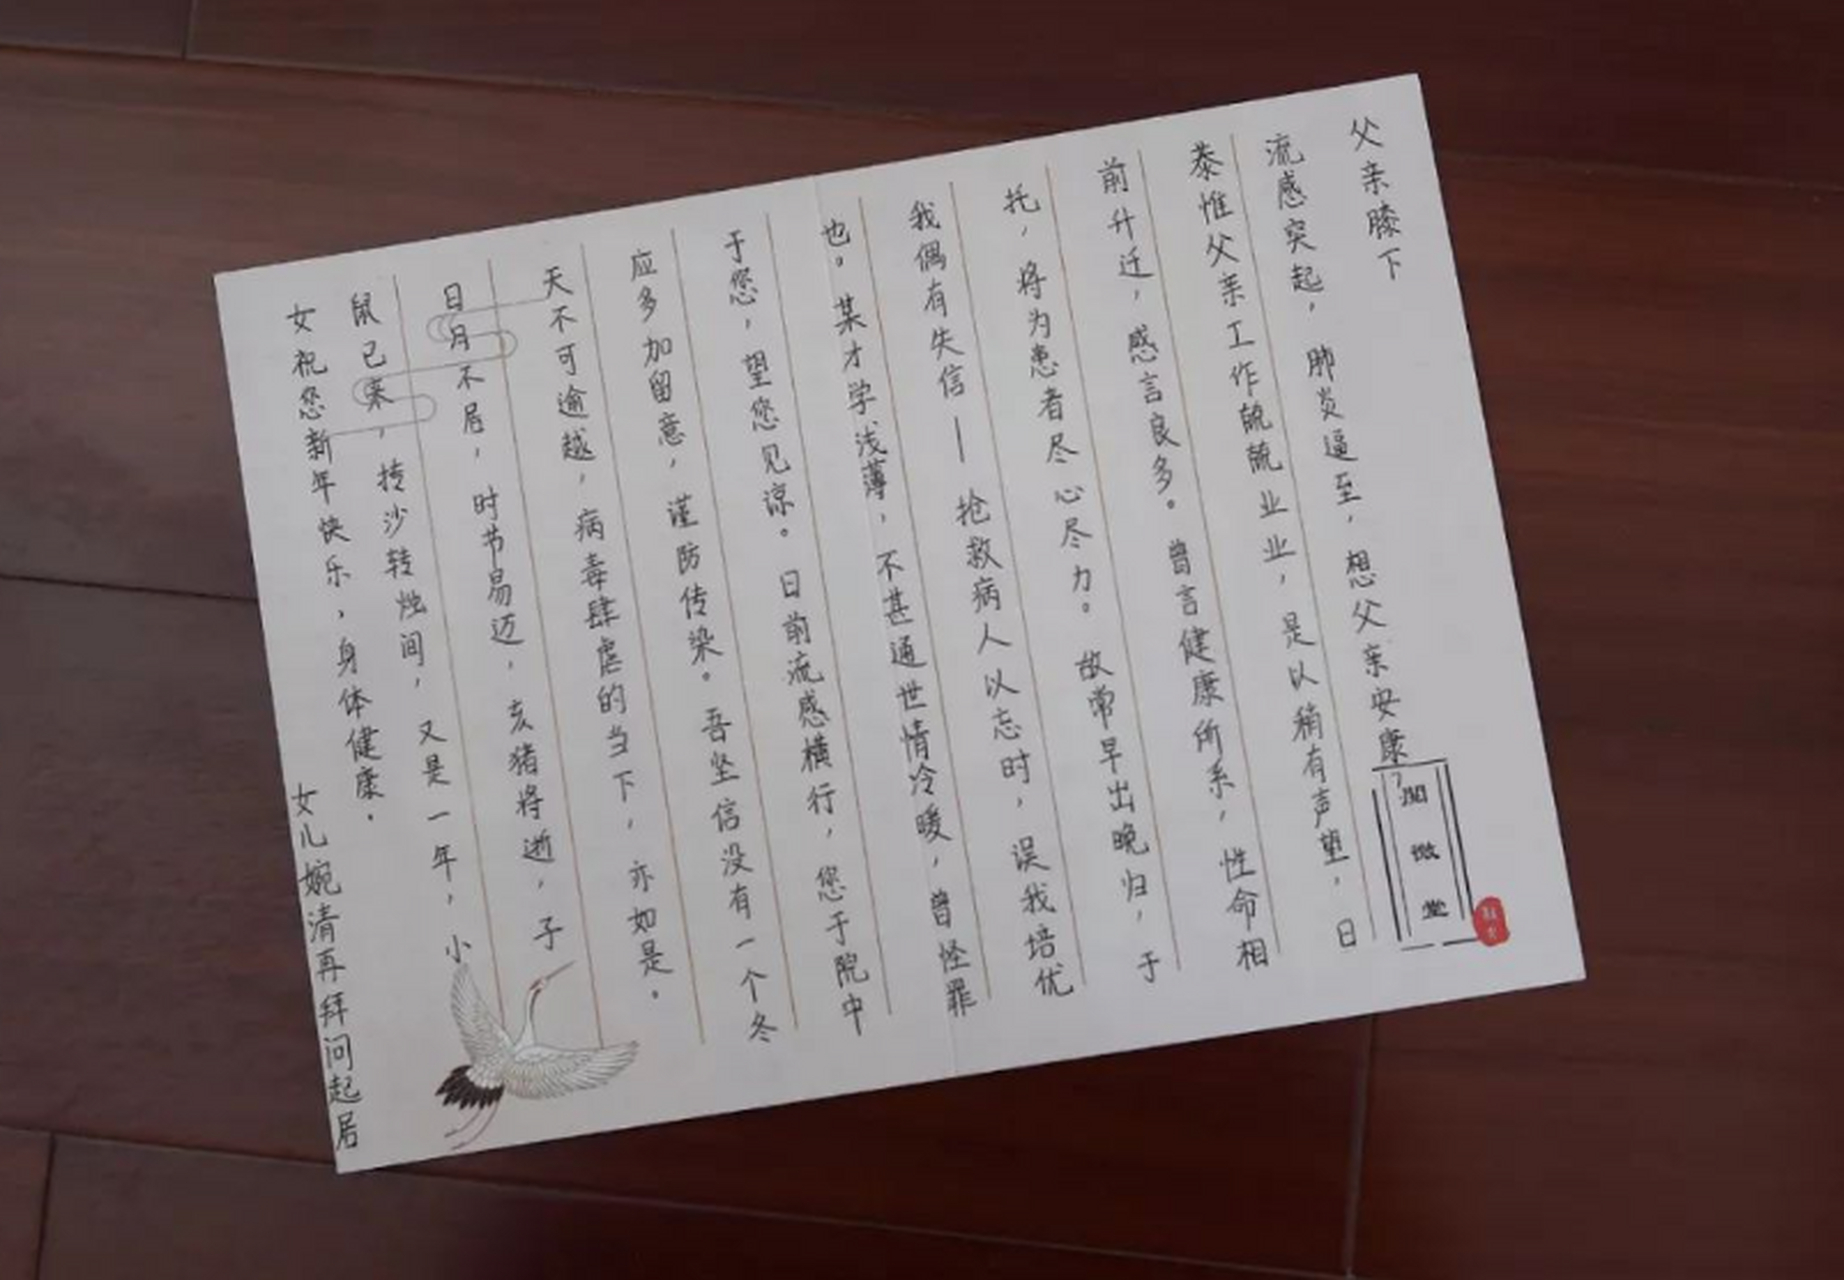 父亲膝下
流感突起，肺炎逼至，想父亲安康，
恭惟父亲工作兢兢业业，是以稍有声望，日
前升迁，感言良多。曾言健康所系，性命相
托，将为患者尽心尽力。故常早出晚归，于
我偶有失信——抢救病人以忘时，误我培优
也。某才学浅薄，不甚通世情冷暖，曾怪罪
于您，望您见谅。日前流感横行，您于院中
应多加留意，谨防传染。吾坚信没有一个冬
天不可逾越，病毒肆虐的当下，亦如是。
日月不居，时节易迈，亥猪将逝，子
鼠已来，抟沙转烛间，又是一年，小
女祝您新年快乐，身体健康。
女儿婉清再拜问起居
阅微堂